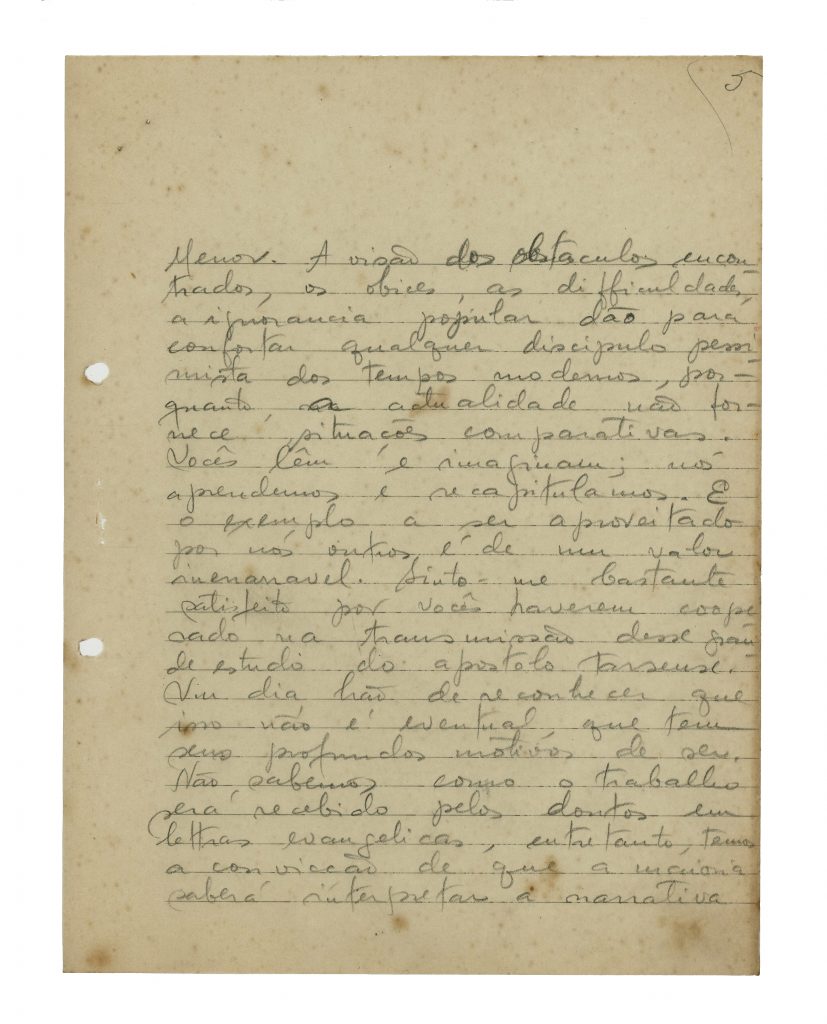 5
Menor. A visão dos obstaculos encon-
trados, os obices, as difficuldades,
a ignorancia popular dão para
confortar qualquer discipulo pessi-
mista dos tempos modernos, por-
quanto, a actualidade não for-
nece situações comparativas.
Vocês lêm e imaginam; nós
aprendemos e recapitulamos. E
o exemplo a ser aproveitado
por nós outros, é de um valor
inenarravel. Sinto-me bastante
satisfeito por vocês haverem coope
rado na transmissão desse gran-
de estudo do apostolo tarsense.
Um dia hão de reconhecer que
isso não é eventual, que tem
seus profundos motivos de ser.
Não sabemos como o trabalho
será recebido pelos doutos em
lettras evangelicas, entretanto, temos
a convicção de que a maioria
saberá interpretar a narrativa